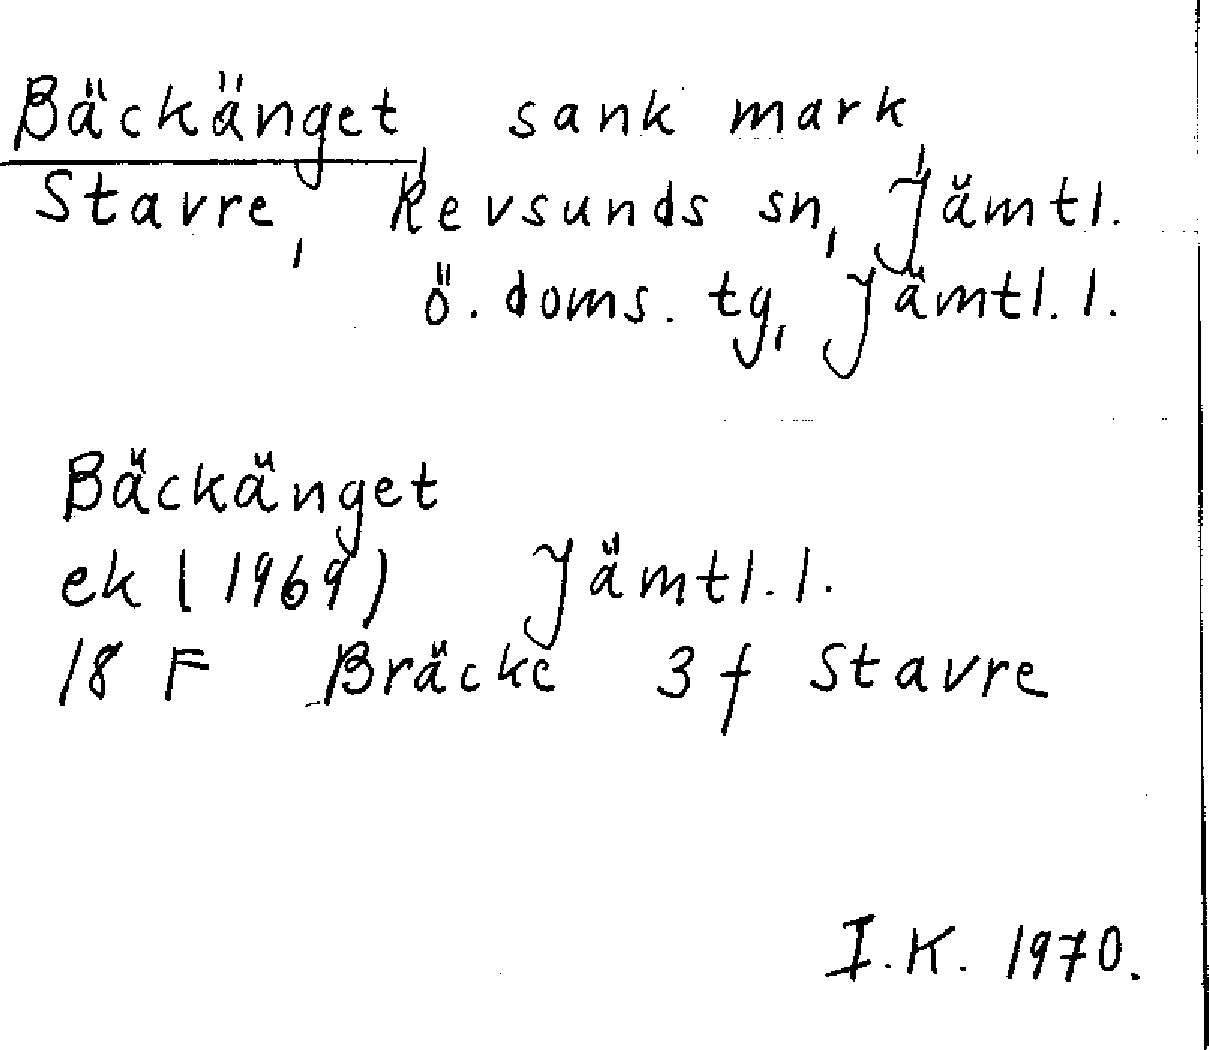 Bäckänget, sank mark,
Stavre, Revsunds sn, Jämtl.
ö. doms. tg, Jämtl. l.
Bäckänget
ek (1969) Jämtl. l.
18 F Bräcke 3 f Stavre
I.K. 1970.